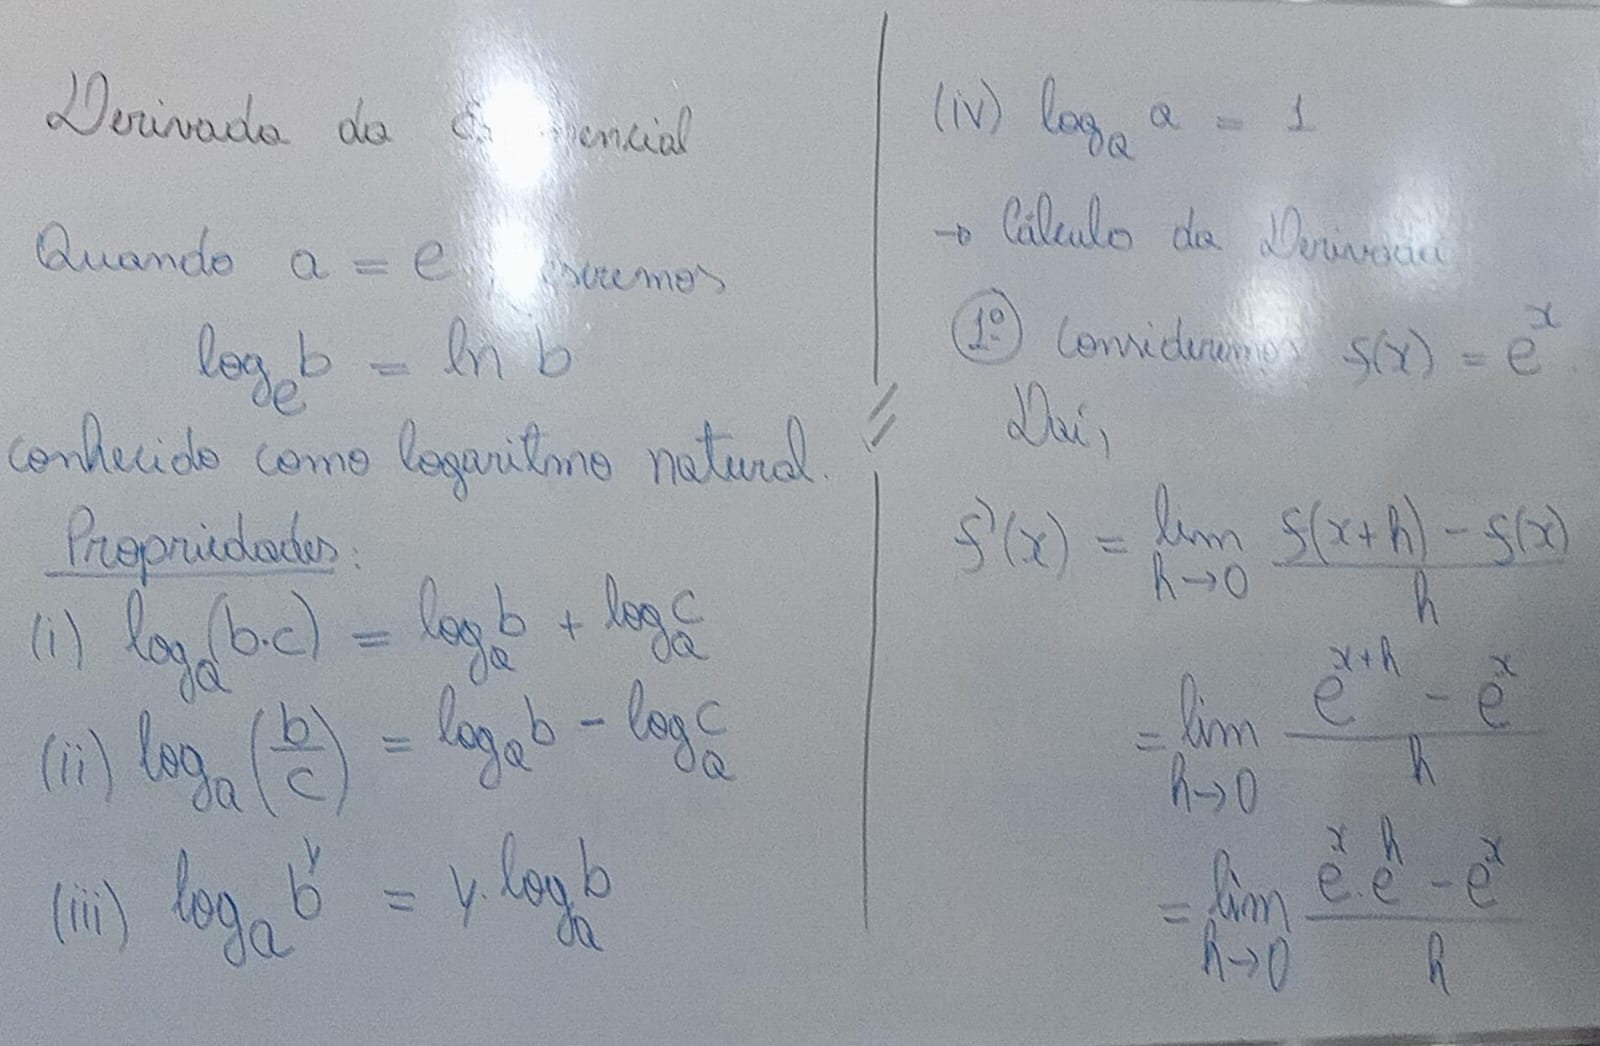 Derivada da
Quando a = e
log_e b = ln b
conhecido como logaritmo natural.
Propriedades:
(i) log_a (b·c) = log_a b + log_a c
(ii) log_a (b/c) = log_a b - log_a c
(iii) log_a b^y = y. log_a b
(iv) log_a a = 1
→ Cálculo da Derivada
1º Consideremos f(x) = e^x.
Daí,
f'(x) = lim h→0 (f(x+h) - f(x))/h
= lim h→0 (e^(x+h) - e^x)/h
= lim h→0 (e^x . e^h - e^x)/h